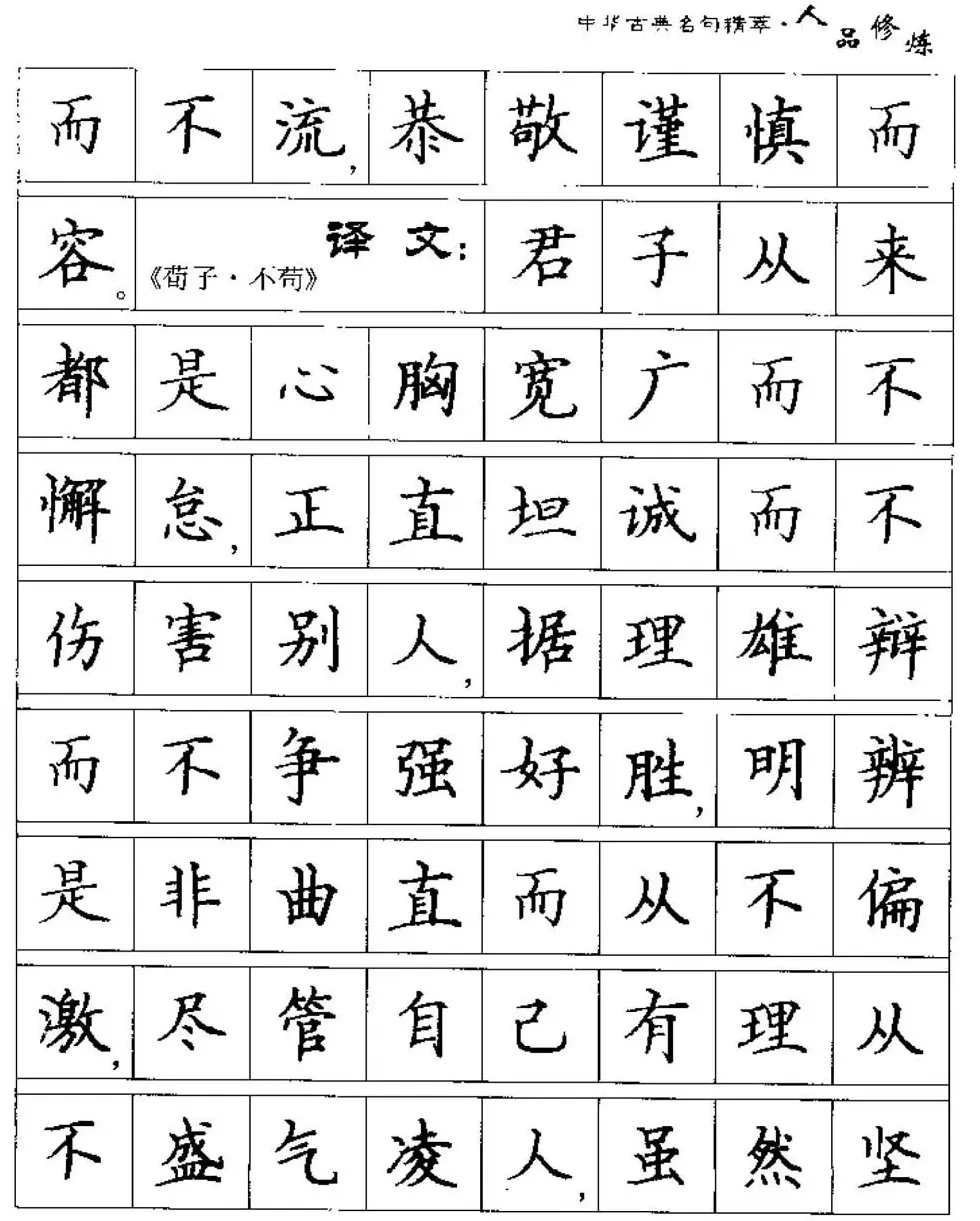 中华古典名句精萃·人品修炼
而不流,恭敬谨慎而
容。《荀子·不苟》译文:君子从来
都是心胸宽广而不
懈怠,正直坦诚而不
伤害别人,据理雄辩
而不争强好胜,明辨
是非曲直而从不偏
激,尽管自己有理从
不盛气凌人,虽然坚